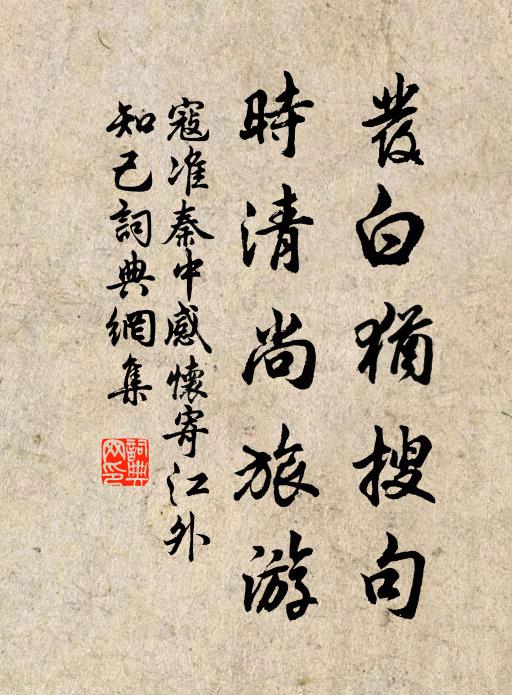 發白猶搜句
時清尚旅游
寇准秦中感懷寄江外
知己詞典網集
詞典网印